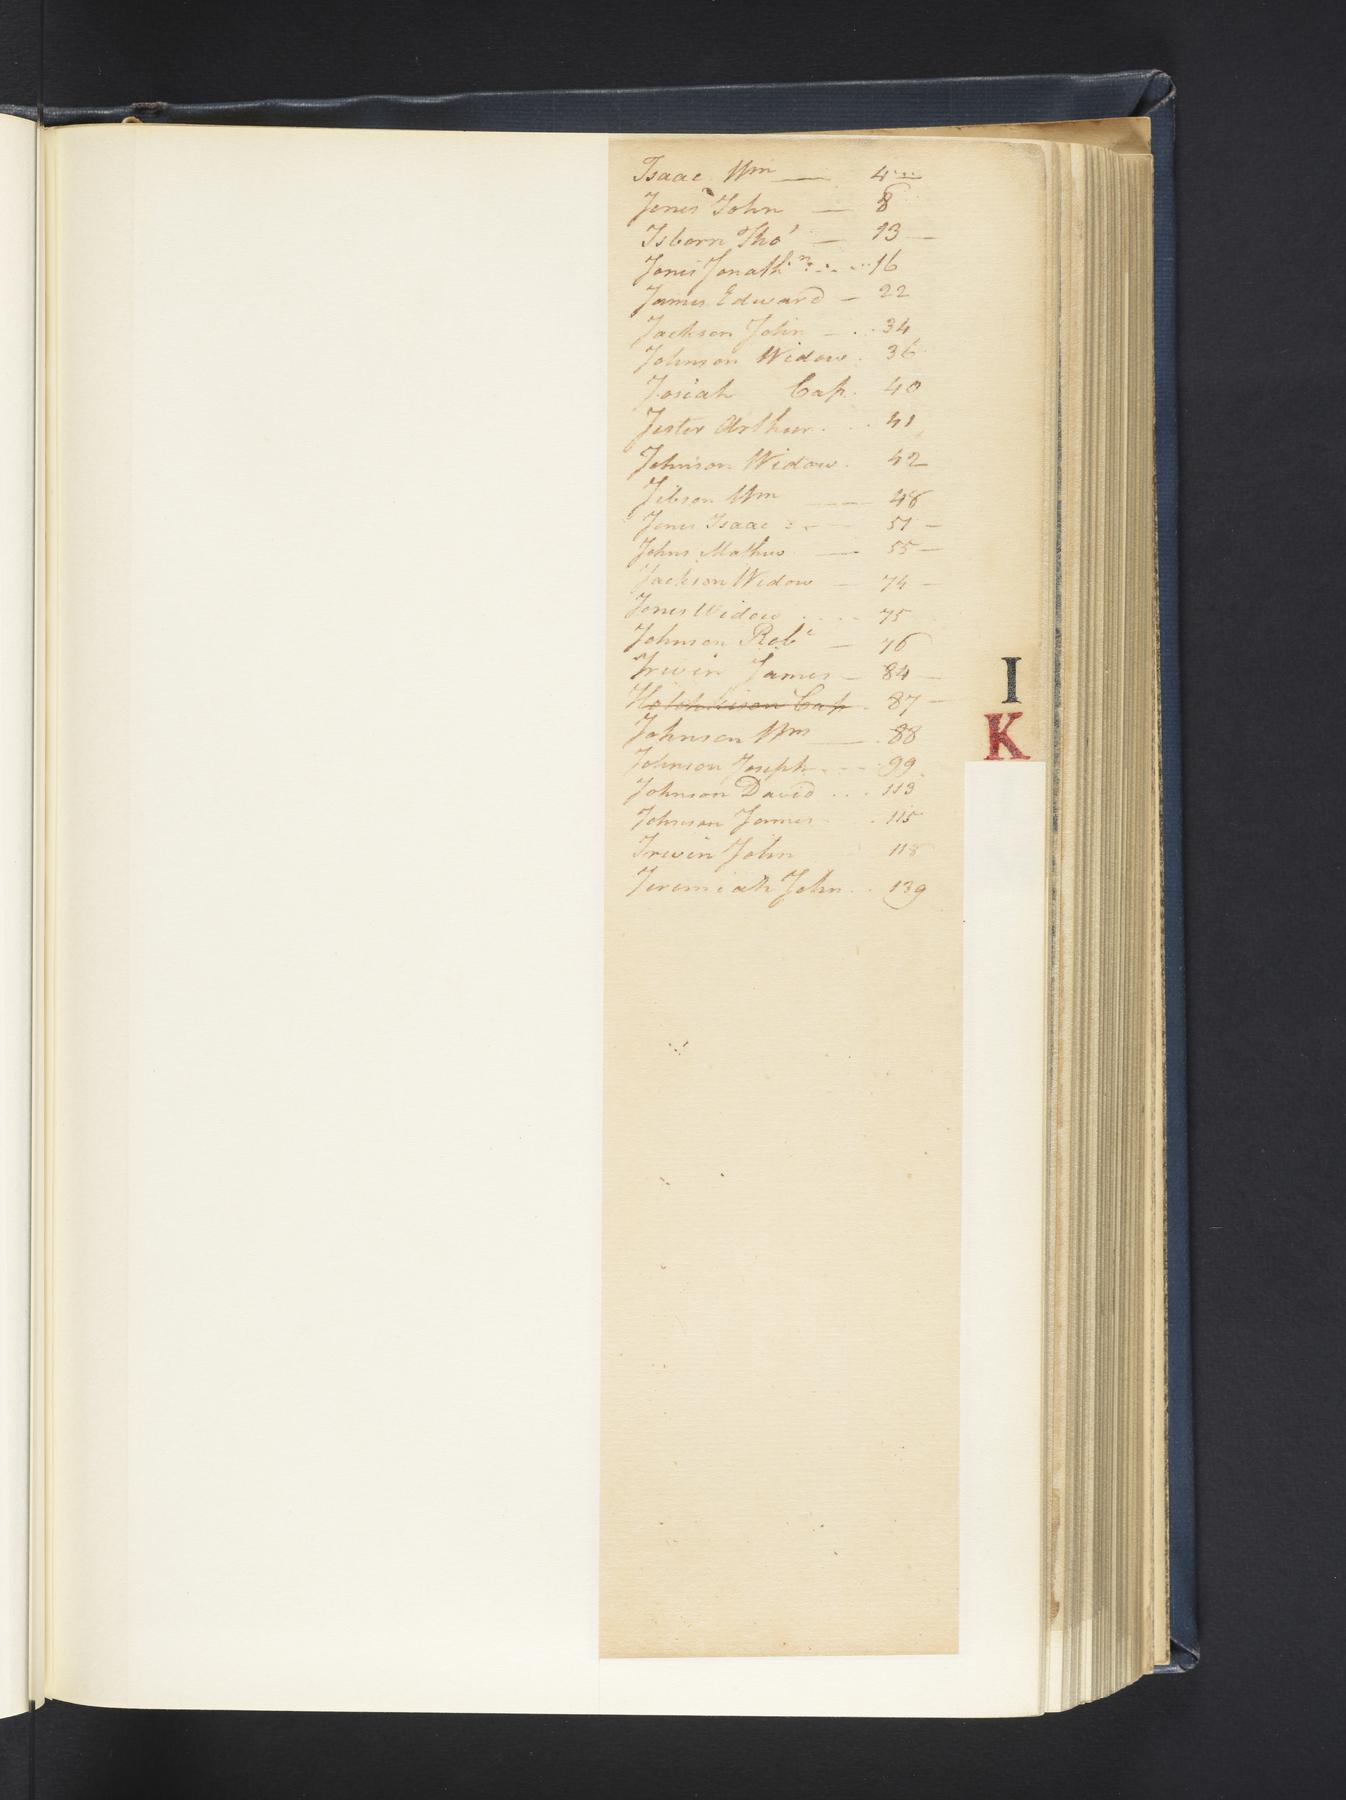 Isaac Wm — 4
Jones John — 8
Isborn Thos — 13 —
Jones Jonathn . . . . 16
James Edward — 22
Jackson John — . . 34
Johnson Widow . 36
Josiah Cap. 40
Jester Arthur . . . 41
Johnson Widow . 42
Jibson Wm — 48
Jones Isaac — 51 —
Johns Mathew — 55 —
Jackson Widow — 74 —
Jones Widow . . . . 75
Johnson Robt — 76
Irwin James — 84 —
Hotchkison Cap . 87 —
Johnson Wm — . 88
Johnson Joseph . . . 99
Johnson David . . . 113
Johnson James . 115
Irwin John 118
Jeremiah John . . 139
I
K